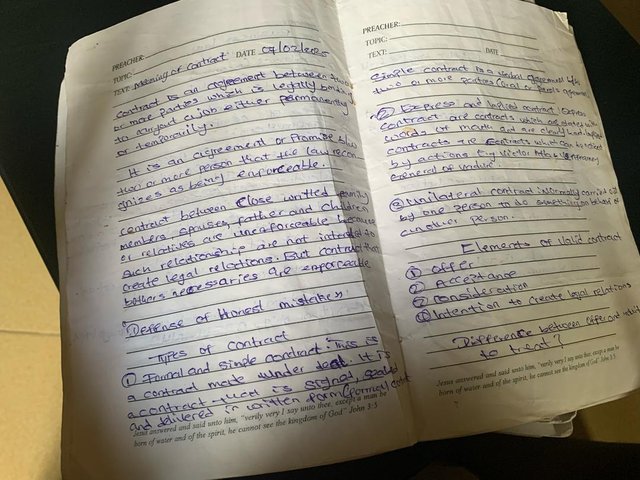 PREACHER:
TOPIC: DATE 07/02/2025
TEXT: Meaning of contract
contract is an agreement between two
or more parties which is legally binding
to carryout a job either permanently
or temporarily.
It is an agreement or Promise b/w
two or more person that the law recon
gnizes as being enforceable.
contract between close family
members spouses, father and children
or relatives are unenforceable because
such relationship are not intended to
create legal relations. But contract that
bothers necessaries are enforceable
① Defense of Honest mistake
Types of contract
① Formal and simple contract: This is
a contract made under seal. It is
a contract that is signed, sealed
and delivered in written form (formal)
Jesus answered and said unto him, "verily very I say unto thee, except a man be
born of water and of the spirit, he cannot see the kingdom of God" John 3:5
PREACHER:
TOPIC:
TEXT: DATE
simple contract is a verbal agreement b/w
two or more parties (oral or parols agreement)
② Express and Implied contract: Express
contract are contracts which are stated with
words of mouth and are clearly
contracts are contracts which can be
by actions E.g Victor
General of
③ unilateral contract informally carried out
by one person to do something on behalf of
another person.
Elements of valid contract
① offer
② Acceptance
③ consideration
④ Intention to create legal relations
Difference between offer and
to treat?
Jesus answered and said unto him, "verily very I say unto thee, except a man be
born of water and of the spirit, he cannot see the kingdom of God" John 3:5